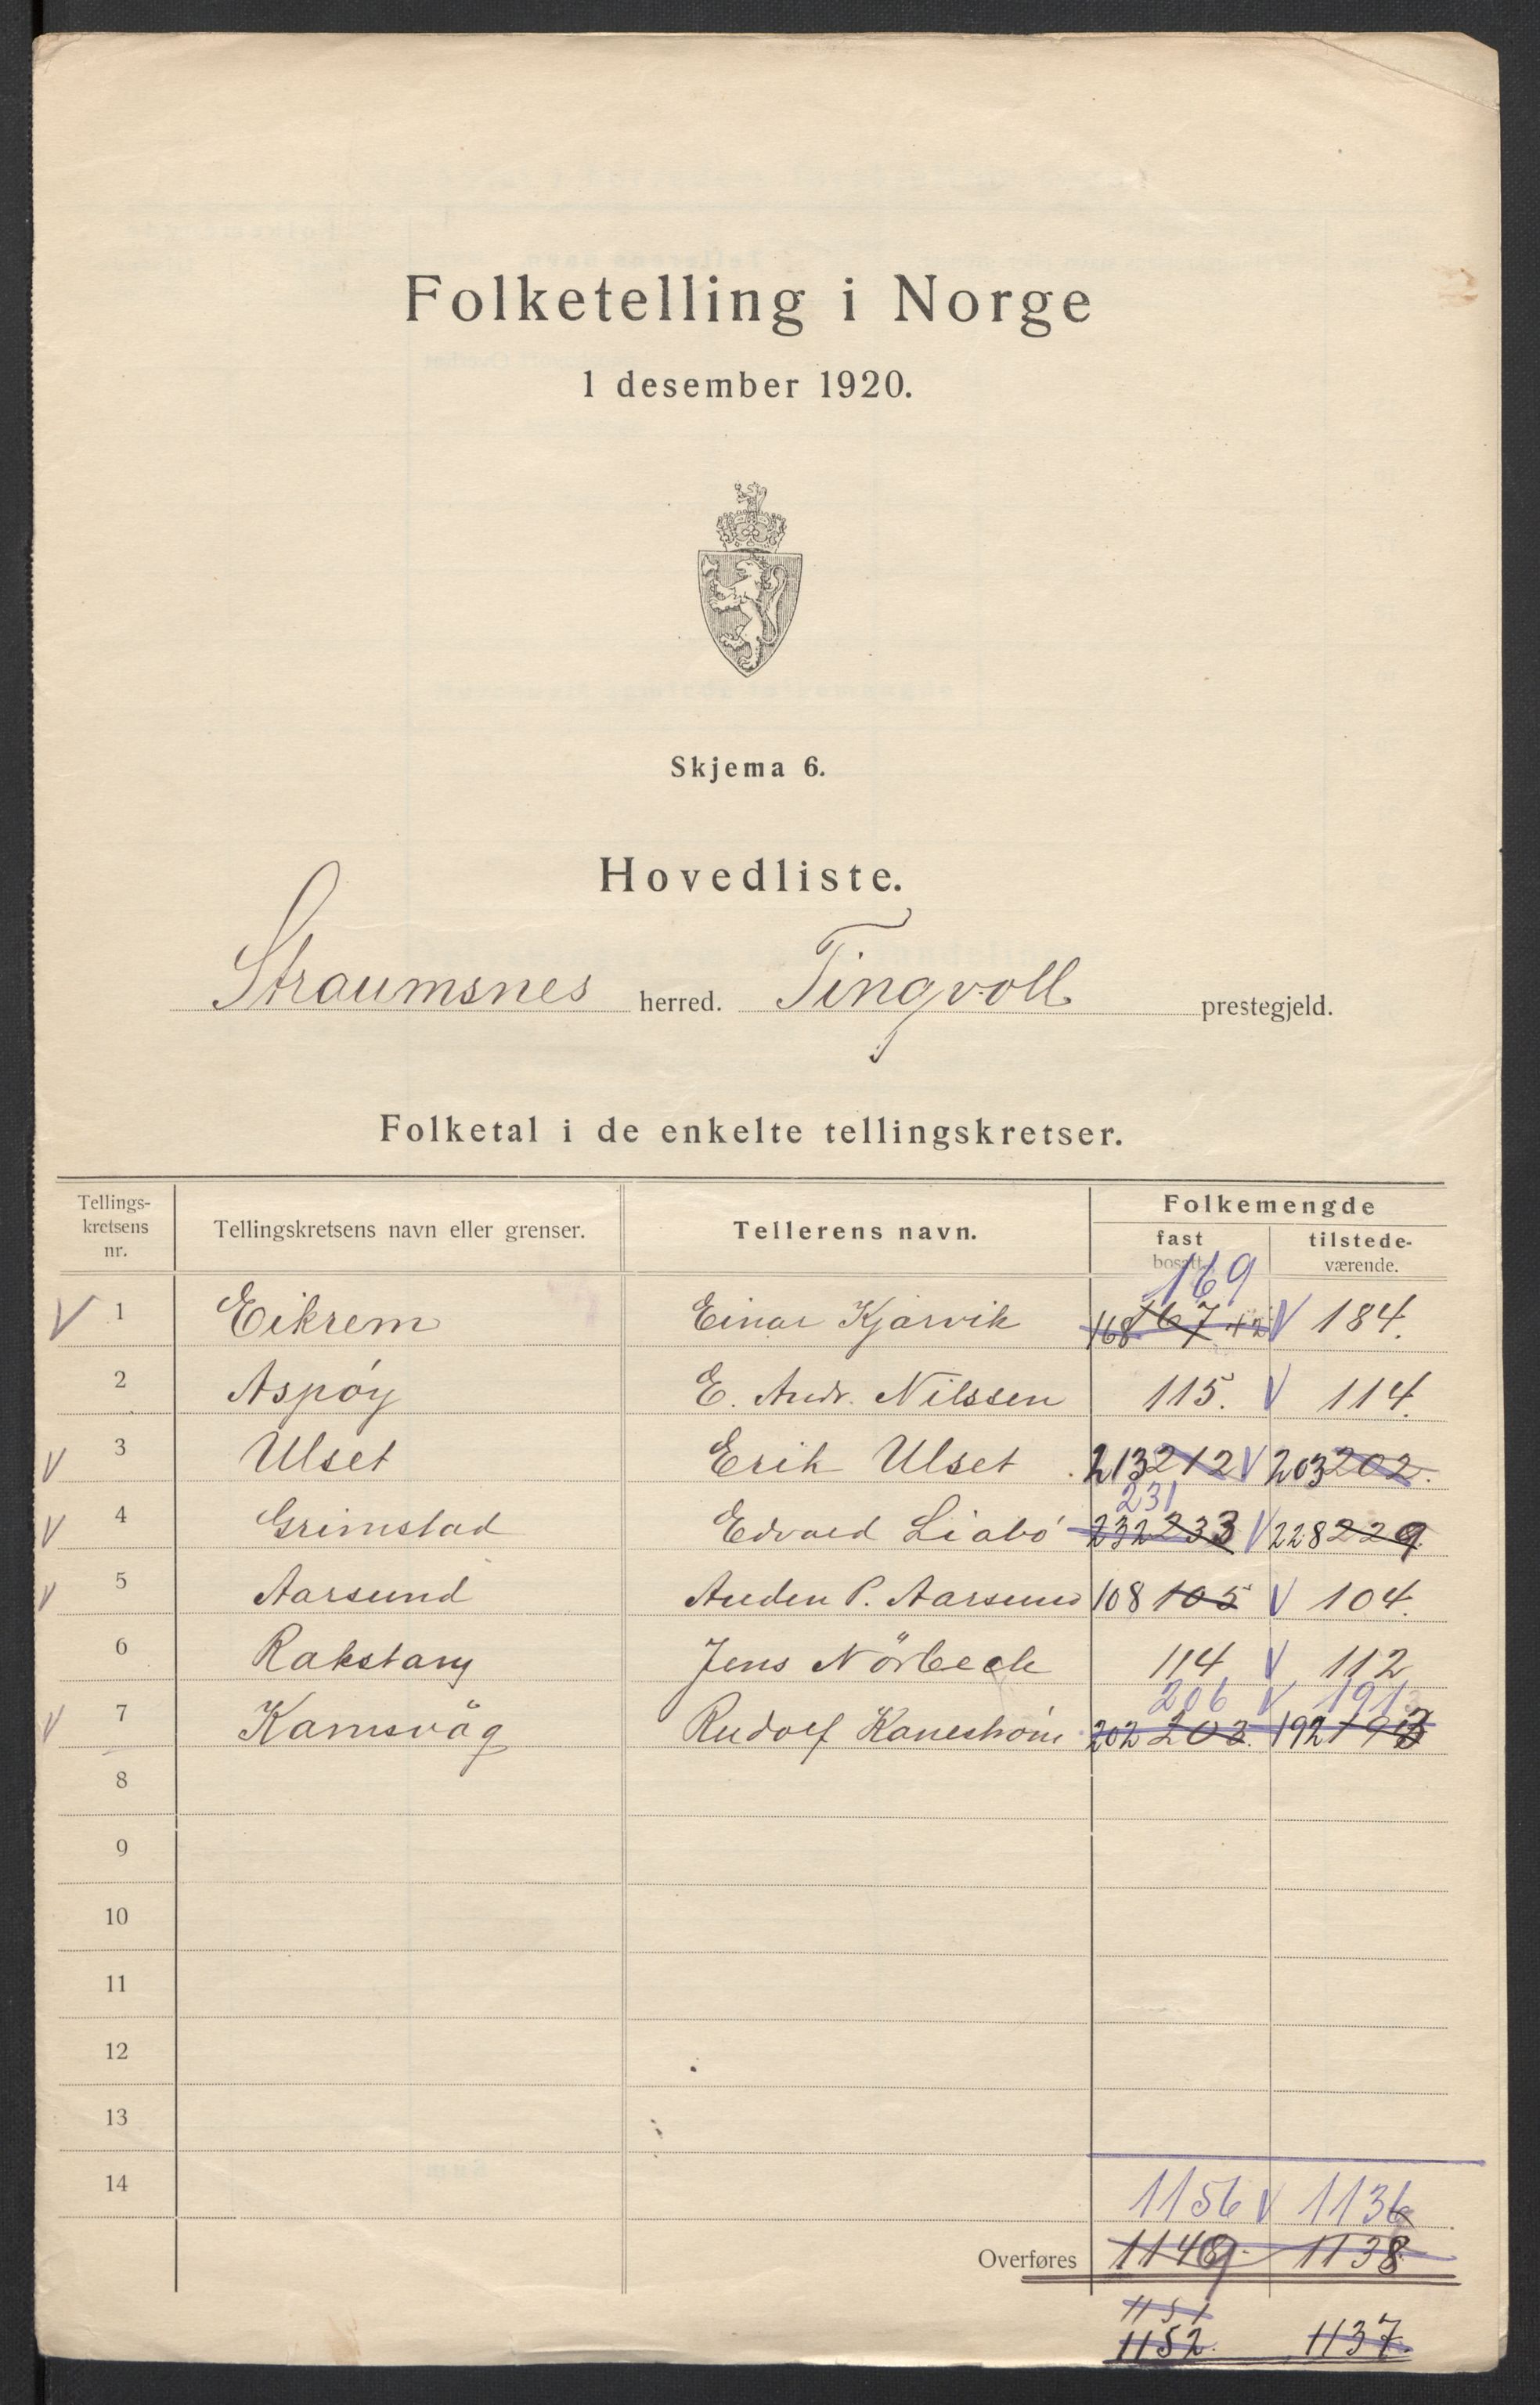 Folketelling i Norge
1 desember 1920.
Skjema 6.
Hovedliste.
Straumsnes herred. Tingvoll prestegjeld.
Folketal i de enkelte tellingskretser.
Tellings-
kretsens
nr.
Tellingskretsens navn eller grenser.
Tellerens navn.
Folkemengde
fast
bosatt.
tilstede-
værende.
169
V 1 Eikrem Einar Kjørvik 168 167 +2 V 184.
2 Aspøy E. Andr. Nilssen 115. V 114.
V 3 Ulset Erik Ulset 213 212 V 203 202.
231
V 4 Grimstad Edvard Liabø 232 233 V 228 229.
V 5 Aarsund Auden P. Aarsund 108 105 V 104.
6 Rakstang Jens Nörbech 114 V 112
206 V 191
V 7 Kamsvåg Rudolf 202 203. 192 193
8
9
10
11
12
13
14
1156 V 1136
Overføres 1149 1138
1151
1152. 1137.